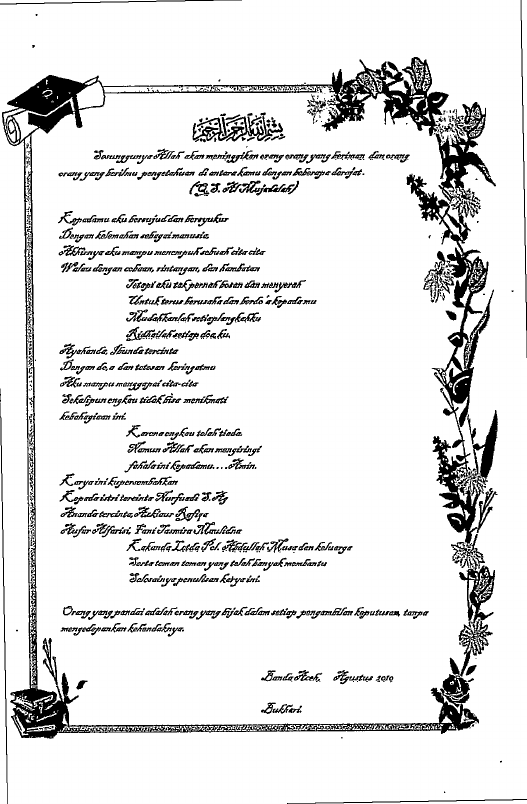 بسم الله الرحمن الرحيم
Sesunggunya Allah akan meninggikan orang orang yang beriman dan orang
orang yang berilmu pengetahuan di antara kamu dengan beberapa darajat.
(Q. S. Al Mujadalah)
Kepadamu aku bersujud dan bersyukur
Dengan kelemahan sebagai manusia,
Akhirnya aku mampu menempuh sebuah cita cita
Walau dengan cobaan, rintangan, dan hambatan
Tetapi aku tak pernah bosan dan menyerah
Untuk terus berusaha dan berdo'a kepada mu
Mudahkanlah setiap langkahku
Ridhailah setiap doa ku.
Ayahanda, Ibunda tercinta
Dengan do,a dan tetesan keringatmu
Aku mampu menggapai cita-cita
Sekalipun engkau tidak bisa menikmati
kebahagiaan ini.
Karena engkau telah tiada.
Namun Allah akan mengiringi
fahala ini kepadamu....Amin.
Karya ini kupersembahkan
Kepada istri tercinta Nurfuadi S.Ag
Ananda tercinta, Azkiaur Rafiqa
Aufar Alfarisi, Fani Tasmira Maulidna
Kakanda Letda Pol. Abdullah Musa dan keluarga
Serta teman teman yang telah banyak membantu
Selesainya penulisan karya ini.
Orang yang pandai adalah orang yang bijak dalam setiap pengambilan keputusan, tanpa
mengedepankan kehendaknya.
Banda Aceh, Agustus 2019
Bukhari.